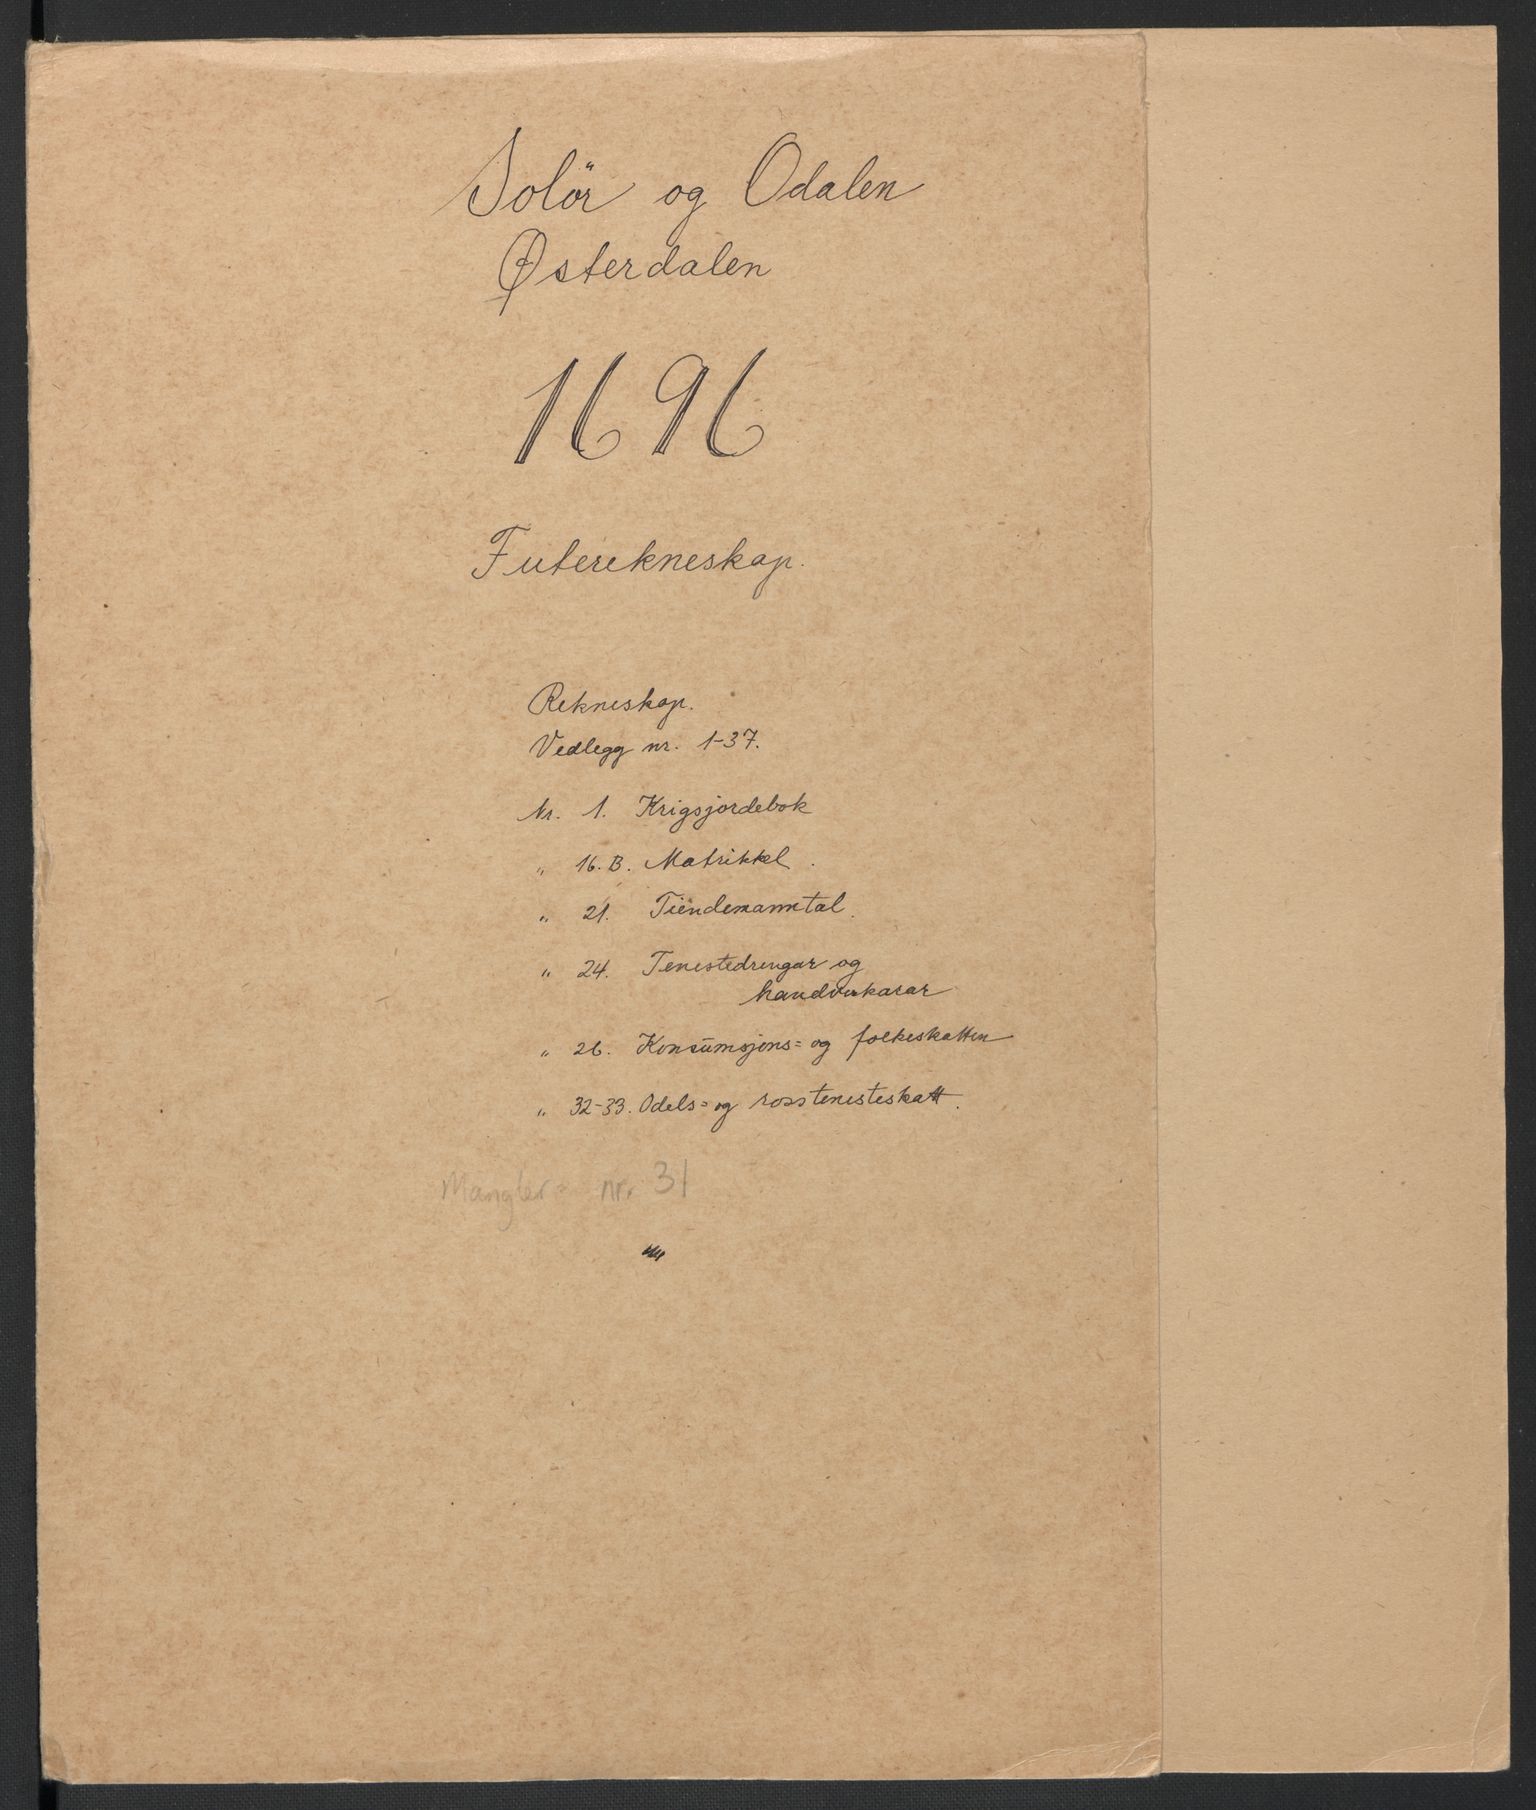 Solör og Odalen
Østerdalen
1696
Futerekneskap.
Rekneskap.
Vedlegg nr. 1-37.
Nr. 1. Krigsjordebok
" 16.B. Matrikkel.
" 21. Tiendemanntal.
" 24. Tenestedrengar og
handverkarar
" 26. Konsumsjons= og folkeskatten
" 32-33. Odels= og rosstenesteskatt.
Mangler nr. 31